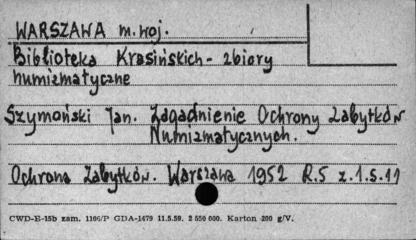 WARSZAWA m. woj.
Biblioteka Krasińskich - zbiory
numizmatyczne
Szymoński Jan. Zagadnienie Ochrony Zabytków
Numizmatycznych.
Ochrona Zabytków. Warszawa 1952 R.5 z.1.s.11
CWD-E-15b zam. 1106/P GDA-1479 11.5.59. 2 650 000. Karton 200 g/V.